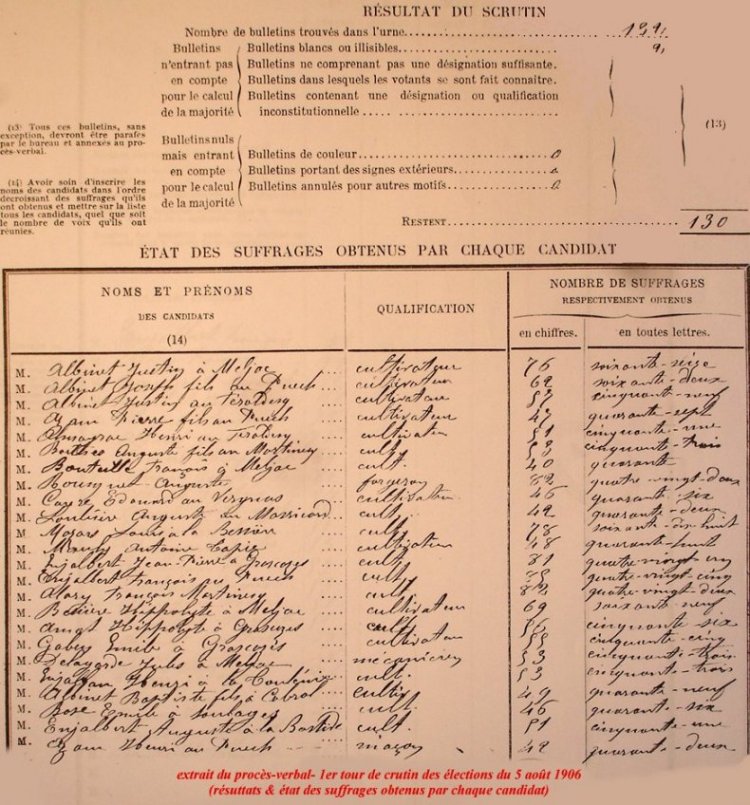 RÉSULTAT DU SCRUTIN
Nombre de bulletins trouvés dans l'urne
Bulletins
n'entrant pas
en compte
pour le calcul
de la majorité
Bulletins blancs ou illisibles.
Bulletins ne comprenant pas une désignation suffisante.
Bulletins dans lesquels les votants se sont fait connaître.
Bulletins contenant une désignation ou qualification
inconstitutionnelle
(13)
(13) Tous ces bulletins, sans
exception, devront être parafés
par le bureau et annexés au pro-
cès-verbal.
Bulletins nuls
mais entrant
en compte
pour le calcul
de la majorité
Bulletins de couleur 0
Bulletins portant des signes extérieurs. 0
Bulletins annulés pour autres motifs. 0
(14) Avoir soin d'inscrire les
noms des candidats dans l'ordre
décroissant des suffrages qu'ils
ont obtenus et mettre sur la liste
tous les candidats, quel que soit
le nombre de voix qu'ils ont
réunies.
RESTENT 130
ÉTAT DES SUFFRAGES OBTENUS PAR CHAQUE CANDIDAT
NOMS ET PRÉNOMS
DES CANDIDATS
(14)
QUALIFICATION
NOMBRE DE SUFFRAGES
RESPECTIVEMENT OBTENUS
en chiffres.
en toutes lettres.
M. Albinet Justin à Meljac cultivateur 76 soixante-seize
M. Albinet Joseph fils au Puech cultivateur 62 soixante-deux
M. Albinet Justin au cultivateur cinquante-neuf
M. Pierre fils au Puech cultivateur 47 quarante-sept
M. Henri au cultivateur 51 cinquante-une
M. Auguste fils au Martinesq cult. 53 cinquante-trois
M. Bouteille François à Meljac cult. 40 quarante
M. Auguste forgeron 82 quatre-vingt-deux
M. Edouard au cultivateur 46 quarante-six
M. Auguste au cult. 42 quarante-deux
M. Mazars Louis à la Bessière cult. 78 soixante-dix-huit
M. Antoine cultivateur 48 quarante-huit
M. Enjalbert Jean-Pierre à cult. quatre-vingt
M. Enjalbert François au Puech cult. quatre-vingt-cinq
M. Alary François Martinesq cult. 82 quatre-vingt-deux
M. Hippolyte à Meljac cultivateur 69 soixante-neuf
M. Hippolyte à cult. 56 cinquante-six
M. Emile à cultivateur 55 cinquante-cinq
M. Delagarde Jules à Meljac mécanicien 53 cinquante-trois
M. Henri à la cult. 53 cinquante-trois
M. Albinet Baptiste fils à cultiv. 49 quarante-neuf
M. Bosc Emile à Soulages cult. 46 quarante-six
M. Enjalbert Auguste à la cult. 51 cinquante-une
M. Henri au Puech maçon 42 quarante-deux
extrait du procès-verbal- 1er tour de crutin des élections du 5 août 1906
(résuttats & état des suffrages obtenus par chaque candidat)